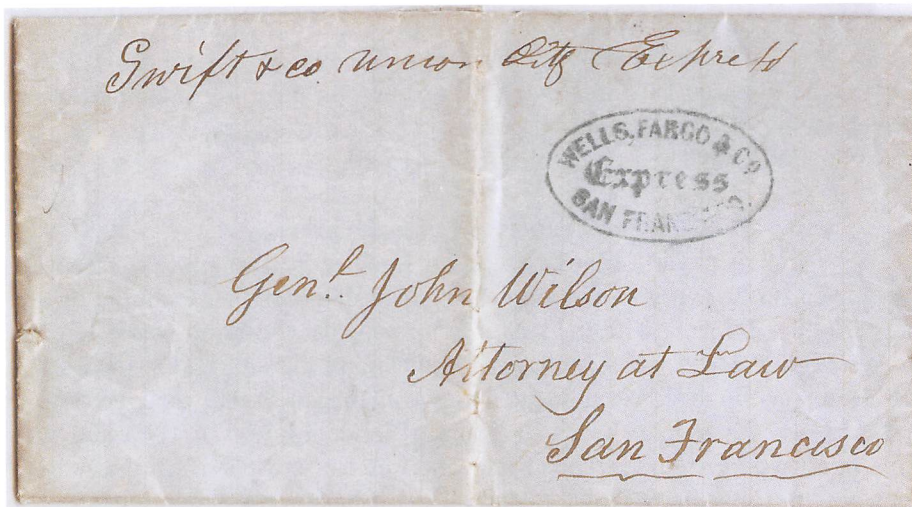 Swift & co. Union City Express
WELLS, FARGO & CO
Express
SAN FRANCISCO.
Genl. John Wilson
Attorney at Law
San Francisco